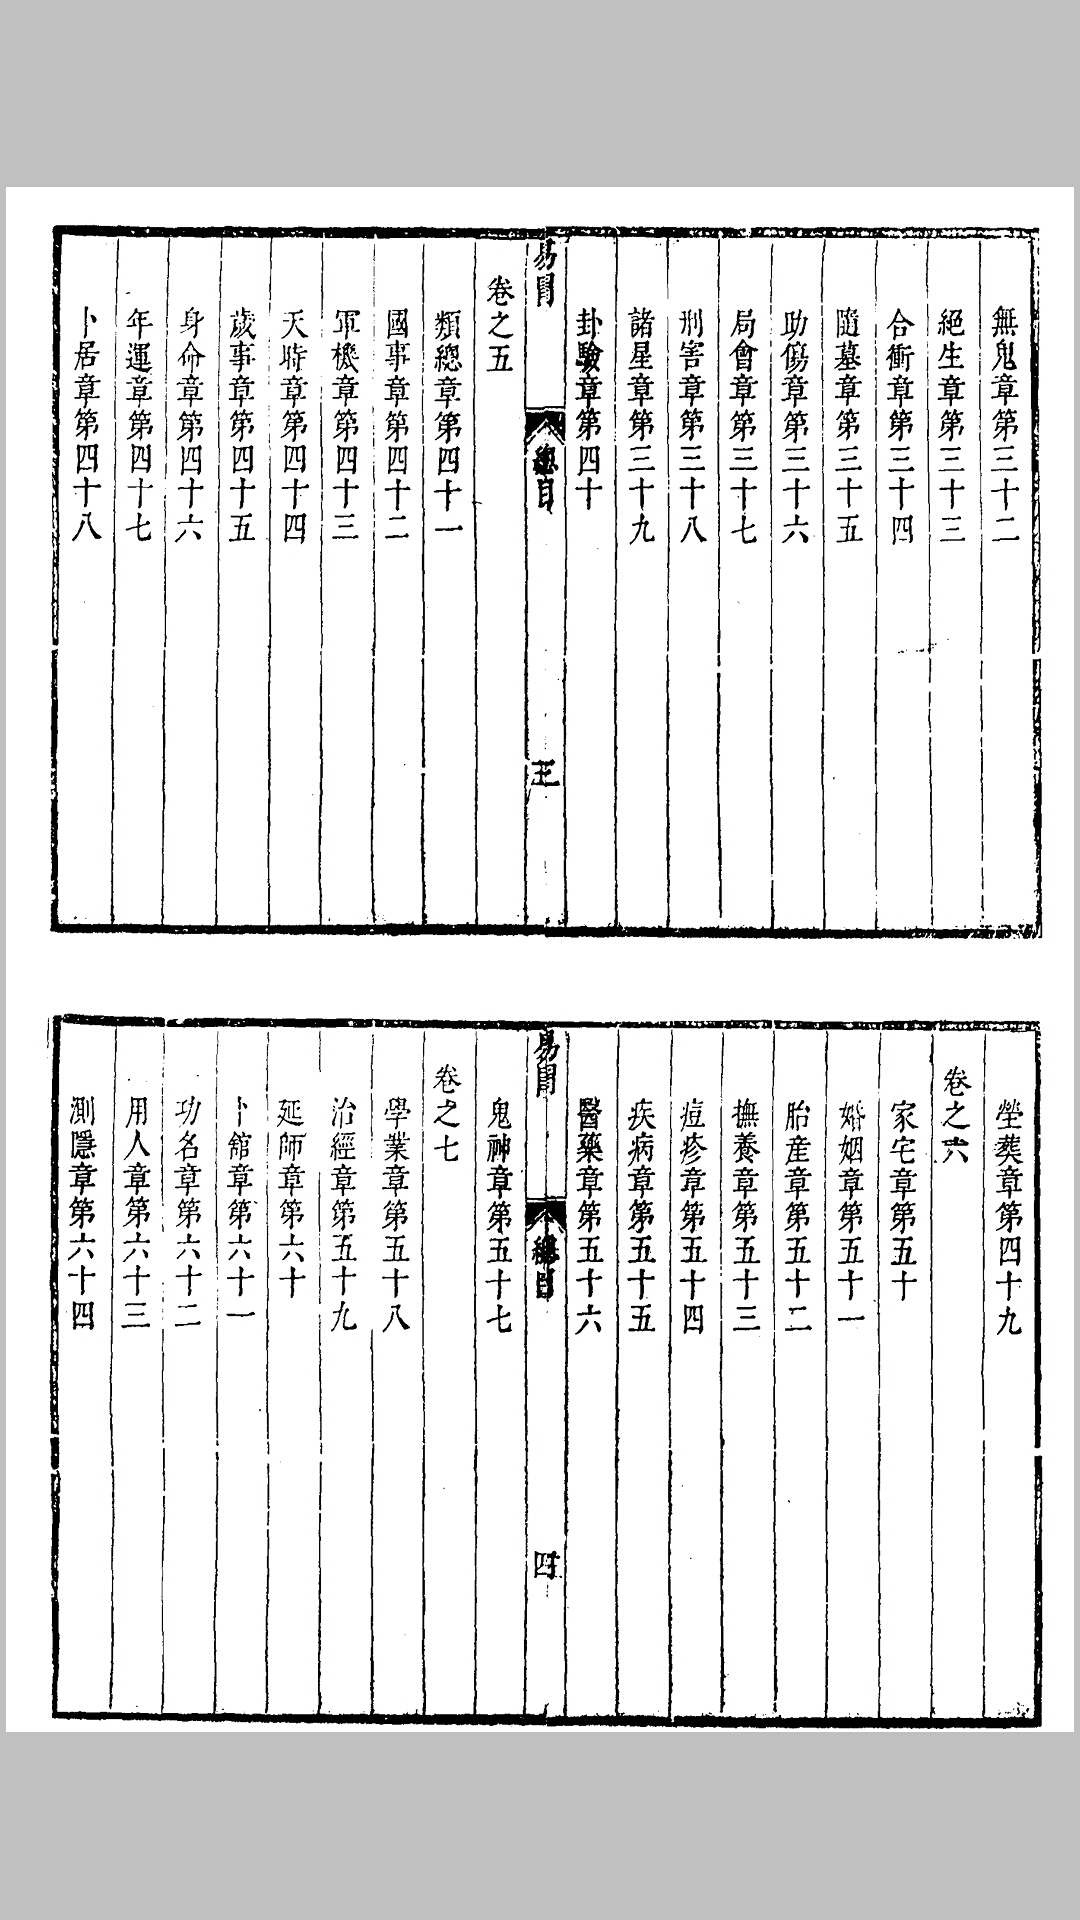 無鬼章第三十二
絕生章第三十三
合衝章第三十四
隨墓章第三十五
助傷章第三十六
局會章第三十七
刑害章第三十八
諸星章第三十九
卦驗章第四十
易冐
總目
三
卷之五
類總章第四十一
國事章第四十二
軍機章第四十三
天時章第四十四
歲事章第四十五
身命章第四十六
年運章第四十七
卜居章第四十八
塋葬章第四十九
卷之六
家宅章第五十
婚姻章第五十一
胎産章第五十二
撫養章第五十三
痘疹章第五十四
疾病章第五十五
醫藥章第五十六
易冐
總目
四
鬼神章第五十七
卷之七
學業章第五十八
治經章第五十九
延師章第六十
卜館章第六十一
功名章第六十二
用人章第六十三
測隱章第六十四